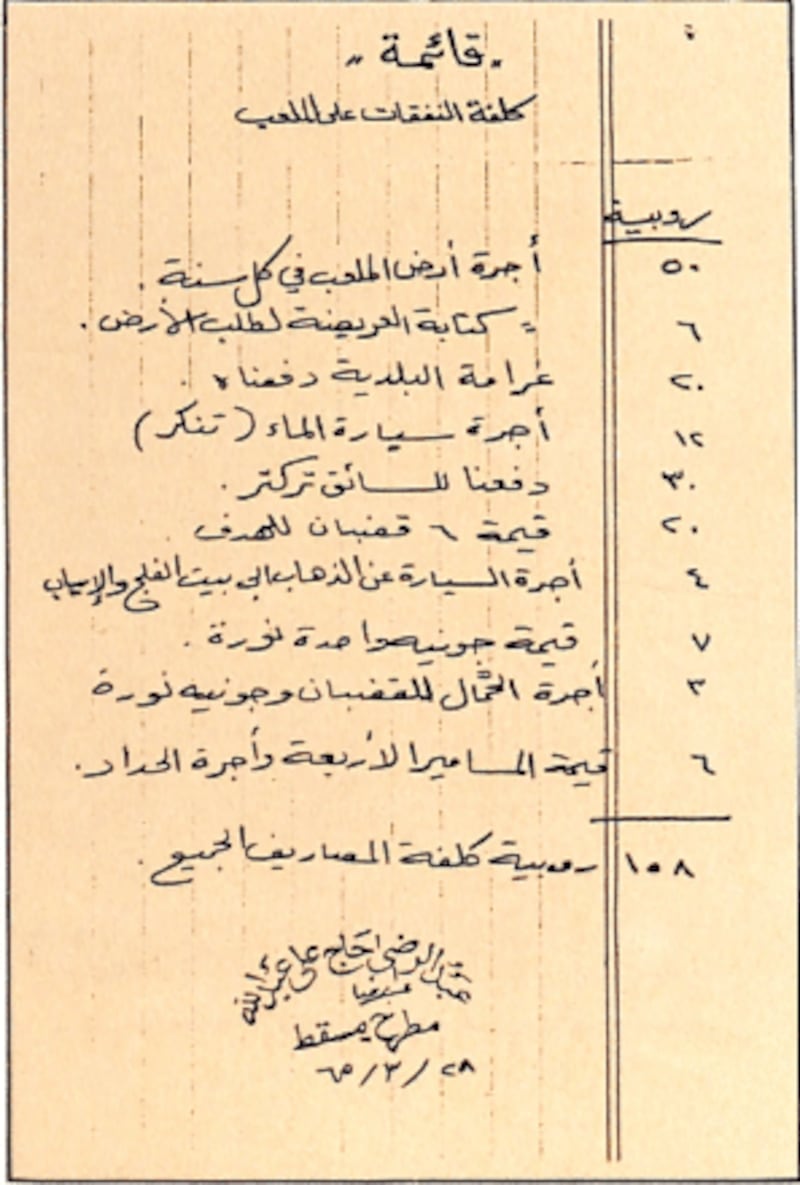 "قائمة"
كلفة النفقات على الملعب
روبية
٥٠ أجرة أرض الملعب في كل سنة.
٦ = كتابة العريضة لطلب الأرض.
٢٠ غرامة البلدية دفعناه.
١٢ أجرة سيارة الماء (تنكر)
٣٠ دفعنا للسائق تركتر.
٢٠ قيمة ٦ قضبان للهدف
٤ أجرة السيارة عن الذهاب الى بيت الفلج والإياب
٧ قيمة جونيه واحدة نورة.
٣ أجرة الحمّال للقضبان وجونيه نورة
٦ قيمة المسامير الأربعة وأجرة الحداد.
١٥٨ روبية كلفة المصاريف الجميع.
عبد الرضى الحاج علي عبد الله
مطرح مسقط
٢٨/٣/٦٥